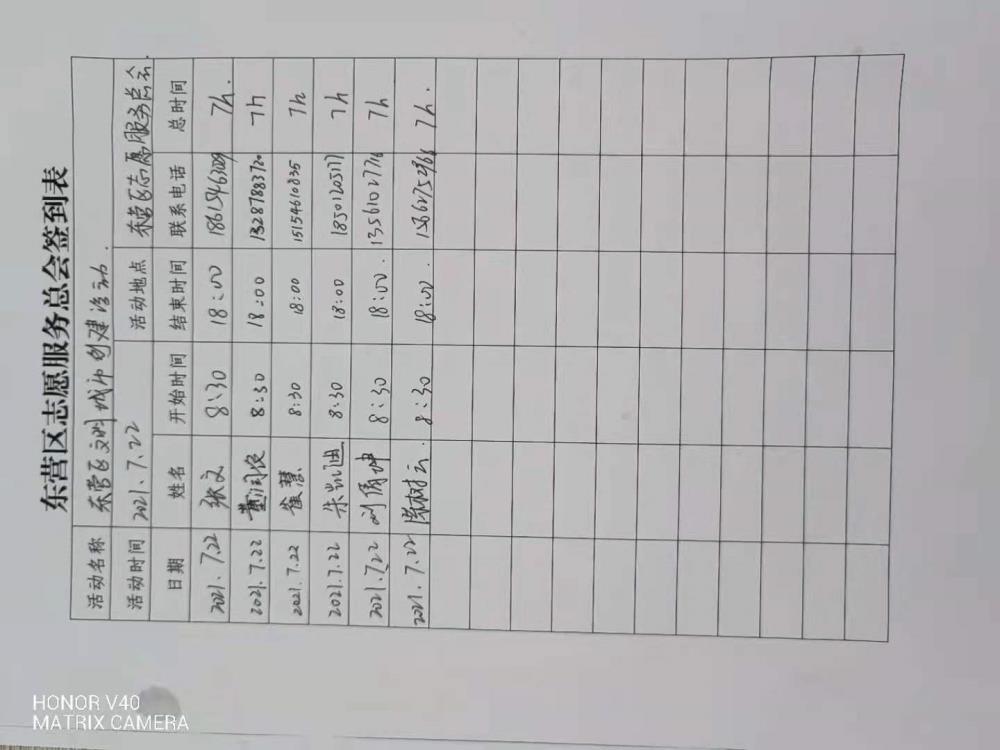 东营区志愿服务总会签到表
活动名称 东营区文明城市创建活动.
活动时间 2021.7.22 活动地点 东营区志愿服务总会.
日期 姓名 开始时间 结束时间 联系电话 总时间
2021.7.22 张文 8:30 18:00 7h.
2021.7.22 董润俊 8:30 18:00 13287883720 7h
2021.7.22 崔慧 8:30 18:00 15154610835 7h
2021.7.22 朱凯迪 8:30 18:00 18501205117 7h
2021.7.22 刘倩坤 8:30 18:00. 13561027716 7h
2021.7.22 陈树云. 8:30 18:00. 7h.
HONOR V40
MATRIX CAMERA